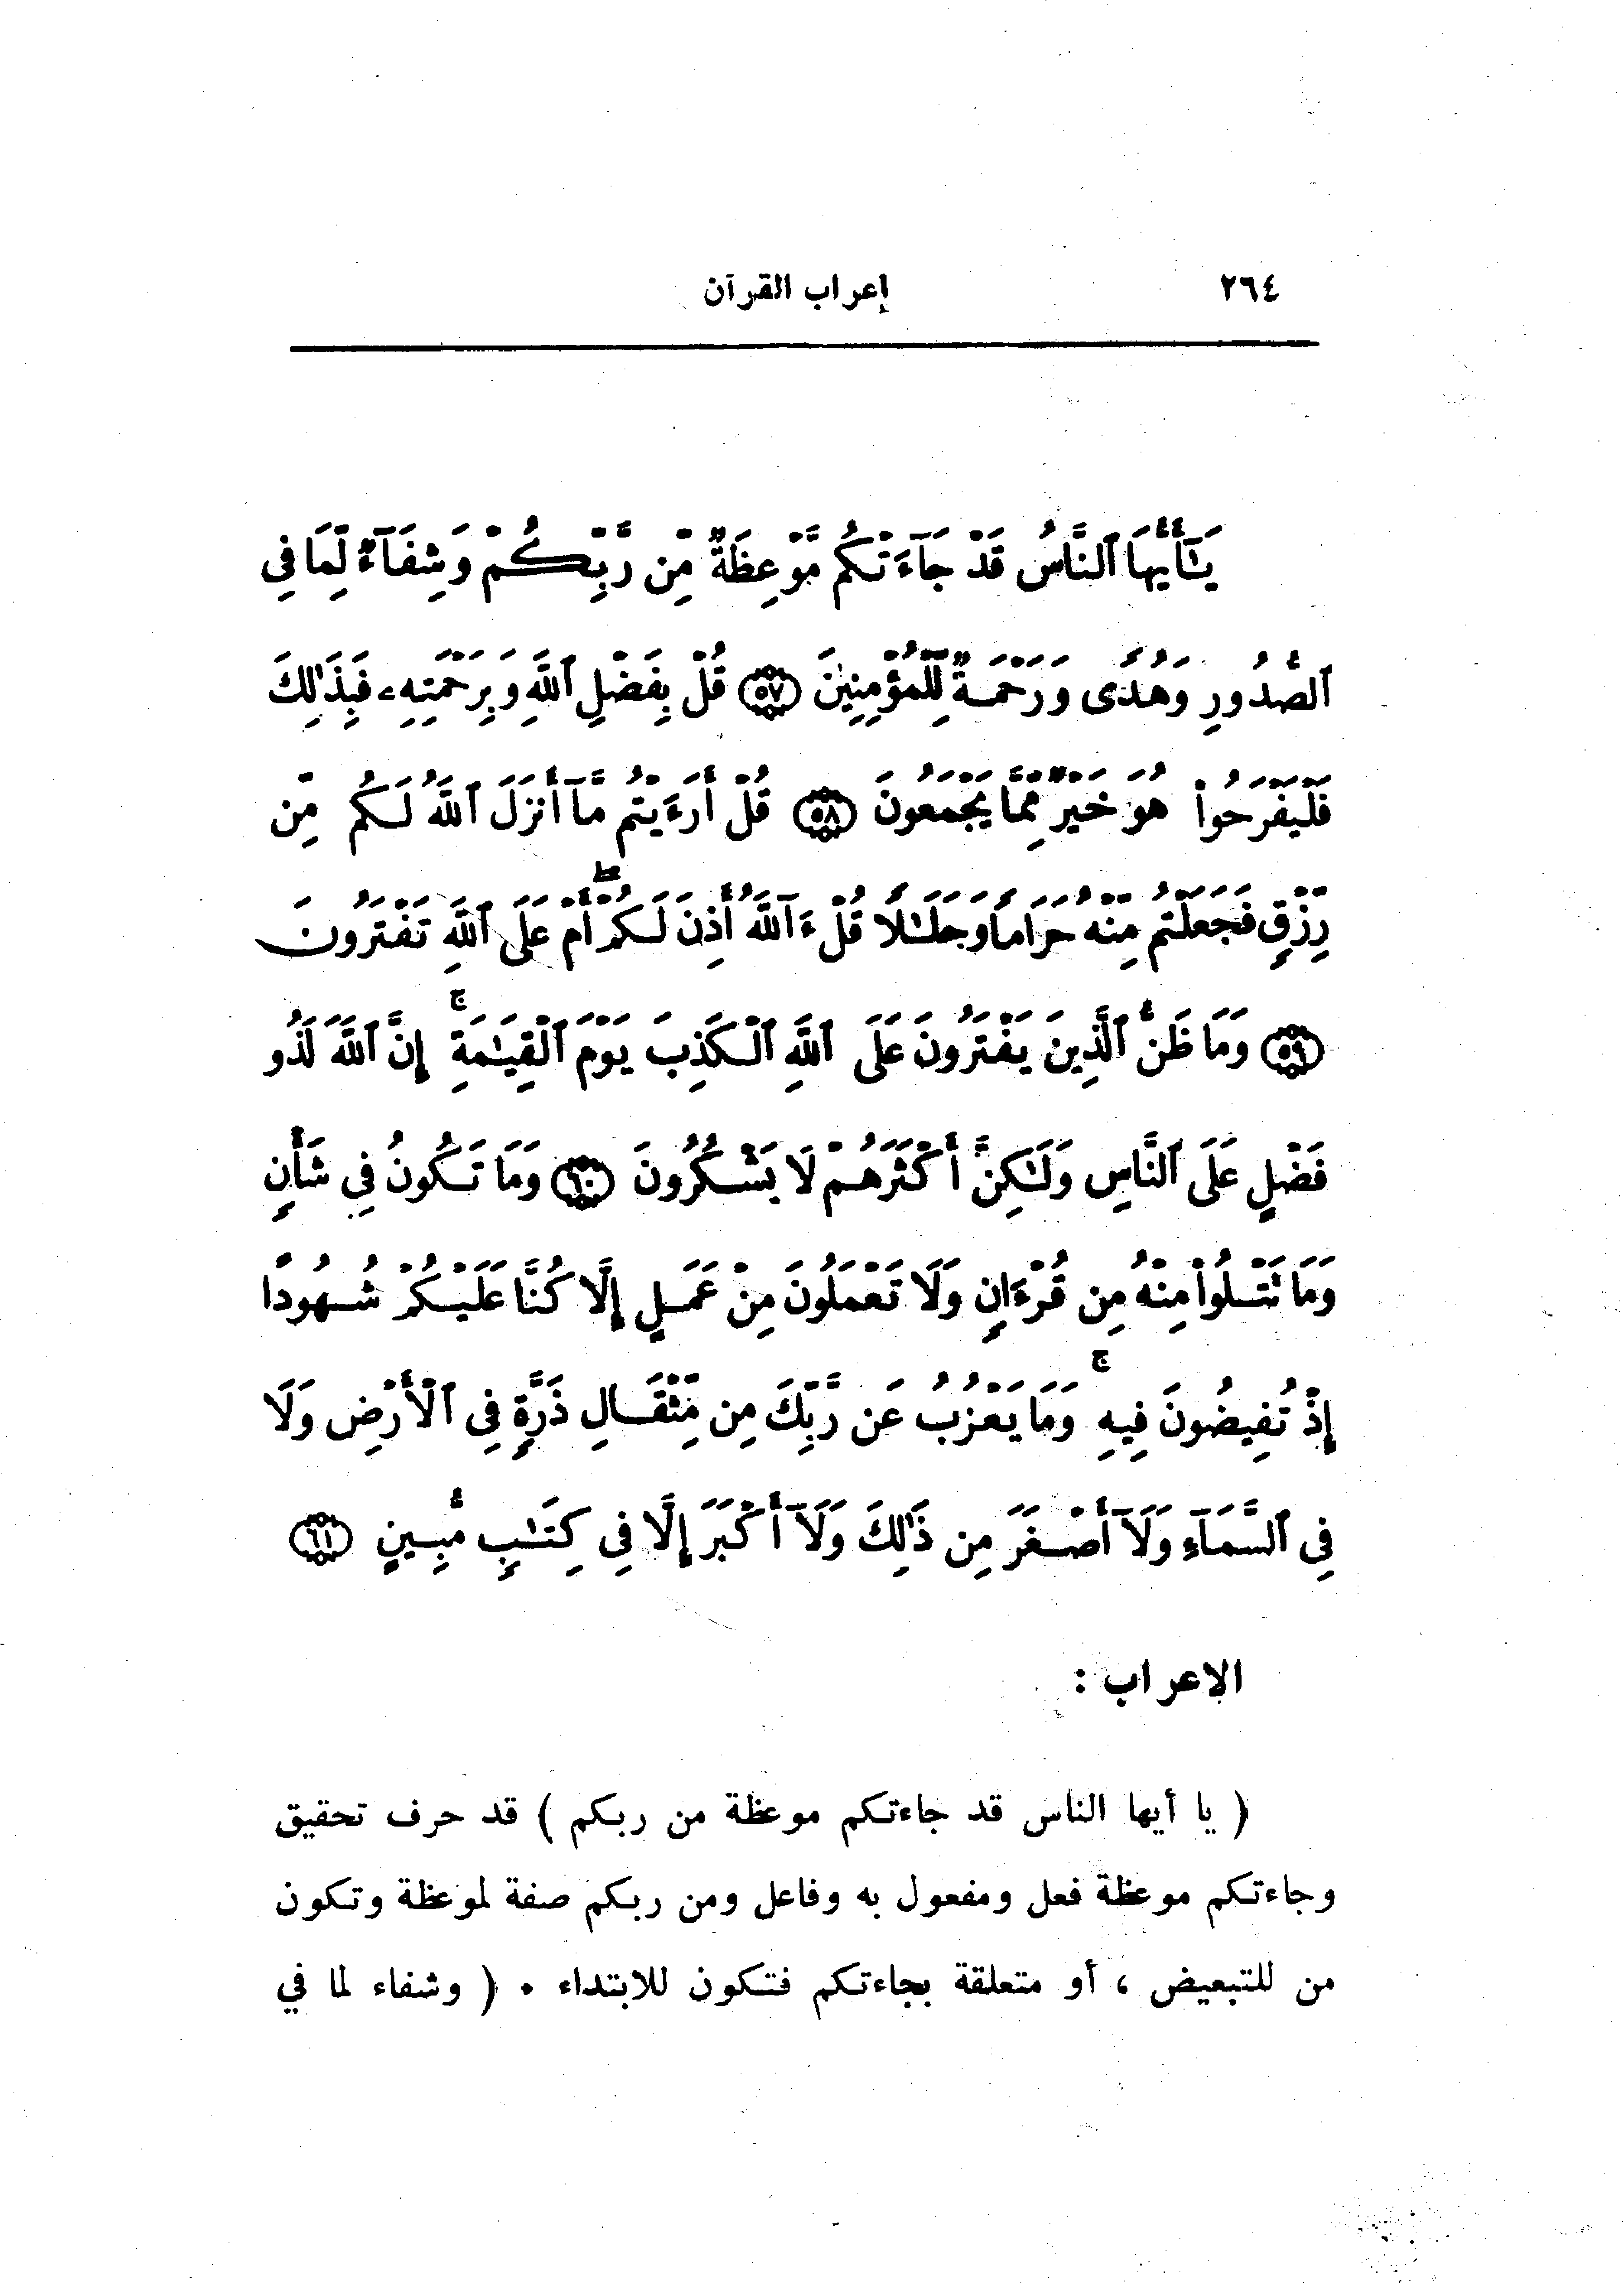 ٢٦٤ إعراب القرآن
يَـٰٓأَيُّهَا ٱلنَّاسُ قَدْ جَآءَتْكُم مَّوْعِظَةٌ مِّن رَّبِّكُمْ وَشِفَآءٌ لِّمَا فِى
ٱلصُّدُورِ وَهُدًى وَرَحْمَةٌ لِّلْمُؤْمِنِينَ ٥٧ قُلْ بِفَضْلِ ٱللَّهِ وَبِرَحْمَتِهِۦ فَبِذَٰلِكَ
فَلْيَفْرَحُوا۟ هُوَ خَيْرٌ مِّمَّا يَجْمَعُونَ ٥٨ قُلْ أَرَءَيْتُم مَّآ أَنزَلَ ٱللَّهُ لَكُم مِّن
رِّزْقٍ فَجَعَلْتُم مِّنْهُ حَرَامًا وَحَلَـٰلًا قُلْ ءَآللَّهُ أَذِنَ لَكُمْ ۖ أَمْ عَلَى ٱللَّهِ تَفْتَرُونَ
٥٩ وَمَا ظَنُّ ٱلَّذِينَ يَفْتَرُونَ عَلَى ٱللَّهِ ٱلْكَذِبَ يَوْمَ ٱلْقِيَـٰمَةِ ۚ إِنَّ ٱللَّهَ لَذُو
فَضْلٍ عَلَى ٱلنَّاسِ وَلَـٰكِنَّ أَكْثَرَهُمْ لَا يَشْكُرُونَ ٦٠ وَمَا تَكُونُ فِى شَأْنٍ
وَمَا تَتْلُوا۟ مِنْهُ مِن قُرْءَانٍ وَلَا تَعْمَلُونَ مِنْ عَمَلٍ إِلَّا كُنَّا عَلَيْكُمْ شُهُودًا
إِذْ تُفِيضُونَ فِيهِ ۚ وَمَا يَعْزُبُ عَن رَّبِّكَ مِن مِّثْقَالِ ذَرَّةٍ فِى ٱلْأَرْضِ وَلَا
فِى ٱلسَّمَآءِ وَلَآ أَصْغَرَ مِن ذَٰلِكَ وَلَآ أَكْبَرَ إِلَّا فِى كِتَـٰبٍ مُّبِينٍ ٦١
الاعراب :
( يا أيها الناس قد جاءتكم موعظة من ربكم ) قد حرف تحقيق
وجاءتكم موعظة فعل ومفعول به وفاعل ومن ربكم صفة لموعظة وتكون
من للتبعيض ، أو متعلقة بجاءتكم فتكون للابتداء . ( وشفاء لما في